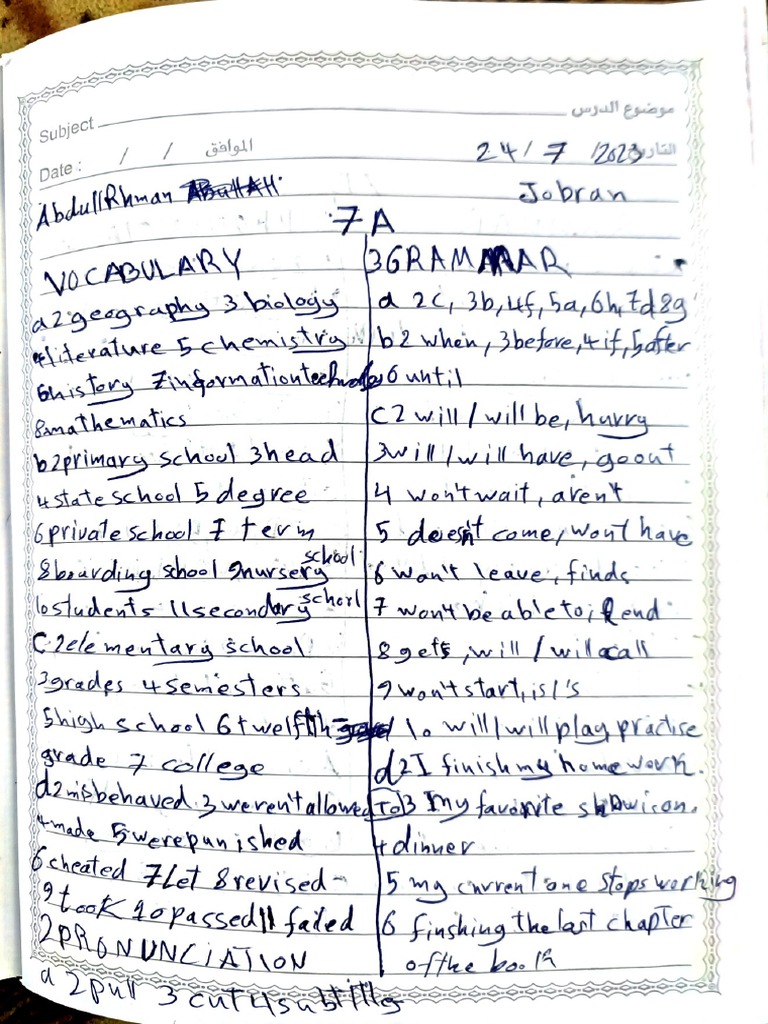 موضوع الدرس
Subject
Date : / / الموافق
التاريخ 24/7/2023
AbdullRhman
Jobran
7A
VOCABULARY
a2 geography 3 biology
4literature 5 chemistry
6history 7information
8mathematics
b2primary school 3head
4state school 5 degree
6private school 7 term
8boarding school 9nursery school
10students 11secondary school
C2elementary school
3grades 4semesters
5high school 6twelfth
grade 7 college
d2misbehaved 3weren't allowed to
4made 5werepunished
6cheated 7Let 8revised
9took 10passed 11 failed
2PRONUNCIATION
a 2pull 3cut 4subtitles
3GRAMMAR
a 2c, 3b, 4f, 5a, 6h, 7d 8g
b2 when, 3before, 4if, 5after
6 until
C2 will/will be, hurry
3will/will have, go out
4 won't wait, aren't
5 doesn't come, wont have
6 won't leave, finds
7 won't be able to, end
8gets, will/will call
9won't start, is/'s
10 will/will play, practise
d2I finish my homework.
3 my favorite show is on.
4dinner
5 my current one stops working
6 finshing the last chapter
of the book